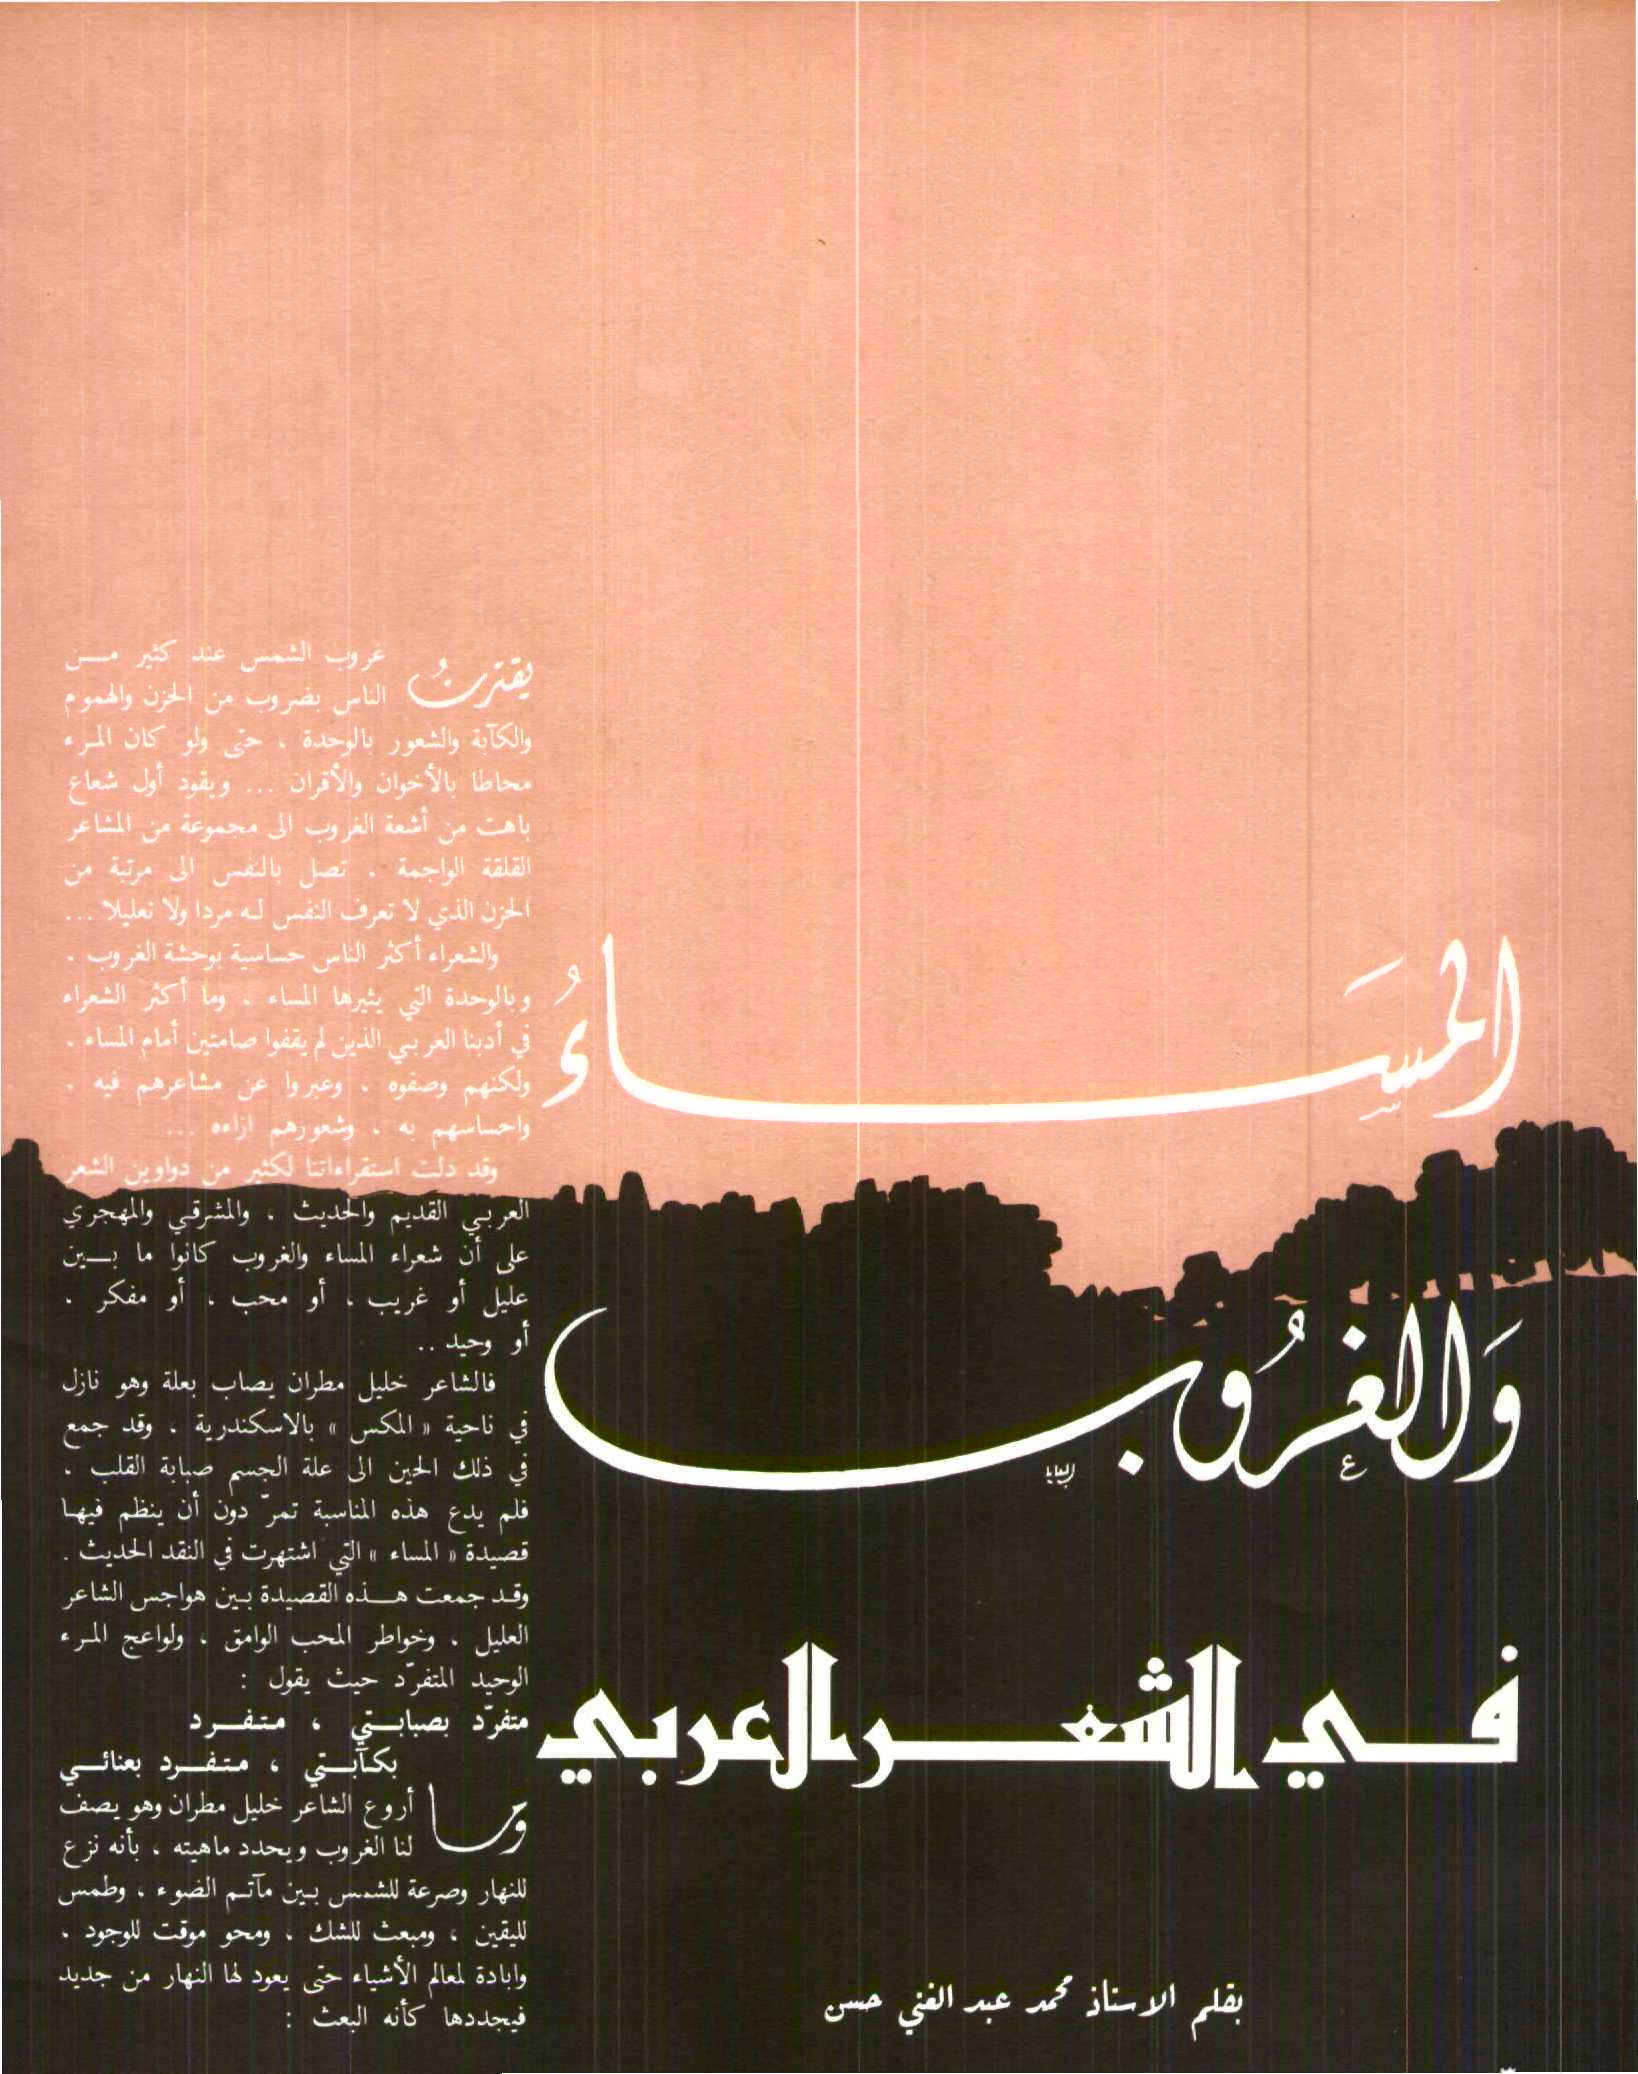 المساءُ
وَالغرُوب
في الشعر العربي
بقلم الاستاذ محمد عبد الغني حسن
يقترنُ غروب الشمس عند كثير من
الناس بضروب من الحزن والهموم
والكآبة والشعور بالوحدة ، حتى ولو كان المرء
محاطا بالأخوان والأقران ... ويقود أول شعاع
باهت من أشعة الغروب الى مجموعة من المشاعر
القلقة الواجمة ، تصل بالنفس الى مرتبة من
الحزن الذي لا تعرف النفس له مردا ولا تعليلا ...
والشعراء أكثر الناس حساسية بوحشة الغروب ،
وبالوحدة التي يثيرها المساء ، وما أكثر الشعراء
في أدبنا العربي الذين لم يقفوا صامتين أمام المساء ،
ولكنهم وصفوه ، وعبروا عن مشاعرهم فيه ،
واحساسهم به ، وشعورهم ازاءه ...
وقد دلت استقراءاتنا لكثير من دواوين الشعر
العربي القديم والحديث ، والمشرقي والمهجري
على أن شعراء المساء والغروب كانوا ما بين
عليل أو غريب ، أو محب ، أو مفكر ،
أو وحيد ..
فالشاعر خليل مطران يصاب بعلة وهو نازل
في ناحية « المكس » بالاسكندرية ، وقد جمع
في ذلك الحين الى علة الجسم صبابة القلب ،
فلم يدع هذه المناسبة تمرّ دون أن ينظم فيها
قصيدة « المساء » التي اشتهرت في النقد الحديث .
وقد جمعت هذه القصيدة بين هواجس الشاعر
العليل ، وخواطر المحب الوامق ، ولواعج المرء
الوحيد المتفرّد حيث يقول :
متفرّد بصبابتي ، متفرد
بكآبتي ، متفرد بعنائي
وما أروع الشاعر خليل مطران وهو يصف
لنا الغروب ويحدد ماهيته ، بأنه نزع
للنهار وصرعة للشمس بين مآتم الضوء ، وطمس
لليقين ، ومبعث للشك ، ومحو موقت للوجود ،
وابادة لمعالم الأشياء حتى يعود لها النهار من جديد
فيجددها كأنه البعث :